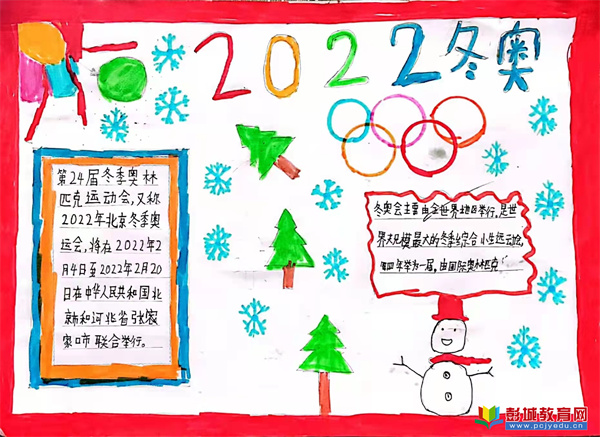 2022冬奥
第24届冬季奥林
匹克运动会，又称
2022年北京冬季奥
运会，将在2022年2
月4日至2022年2月20
日在中华人民共和国北
京和河北省张家
家口市联合举行。
冬奥会主要由全世界地区举行，是世
界大规模最大的冬季综合小生运动会，
每四年举为一届，由国际奥林匹克
彭城教育网
www.pcjyedu.cn